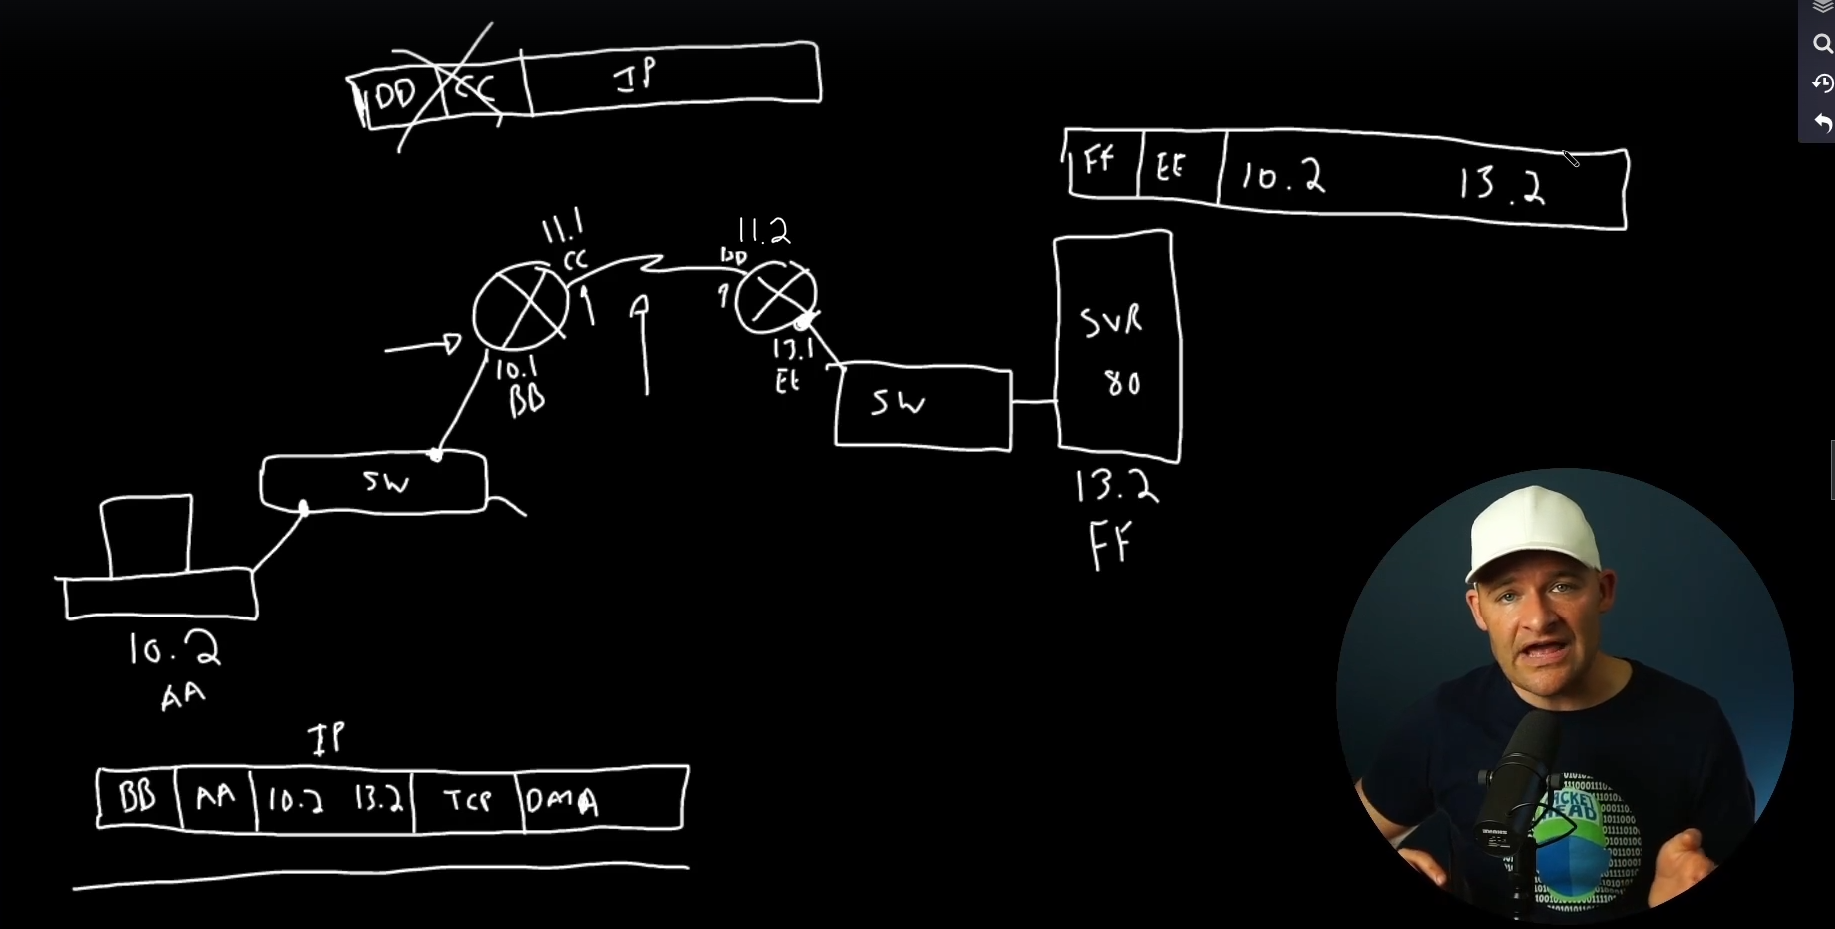 DD CC IP
FF EE 10.2 13.2
11.1
CC
11.2
DD
10.1
BB
13.1
EE
SW
SVR
80
13.2
FF
SW
10.2
AA
IP
BB AA 10.2 13.2 TCP DATA